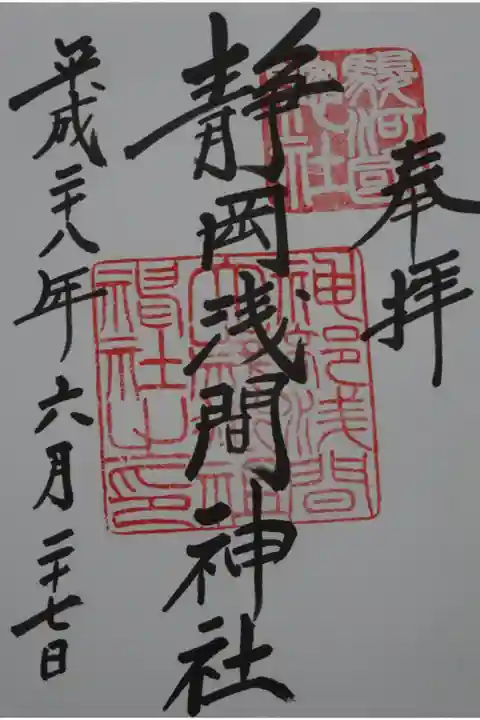 奉拝
駿河国
総社
静岡浅間神社
神部浅間
大歳御祖
神社之印
平成二十八年六月二十七日